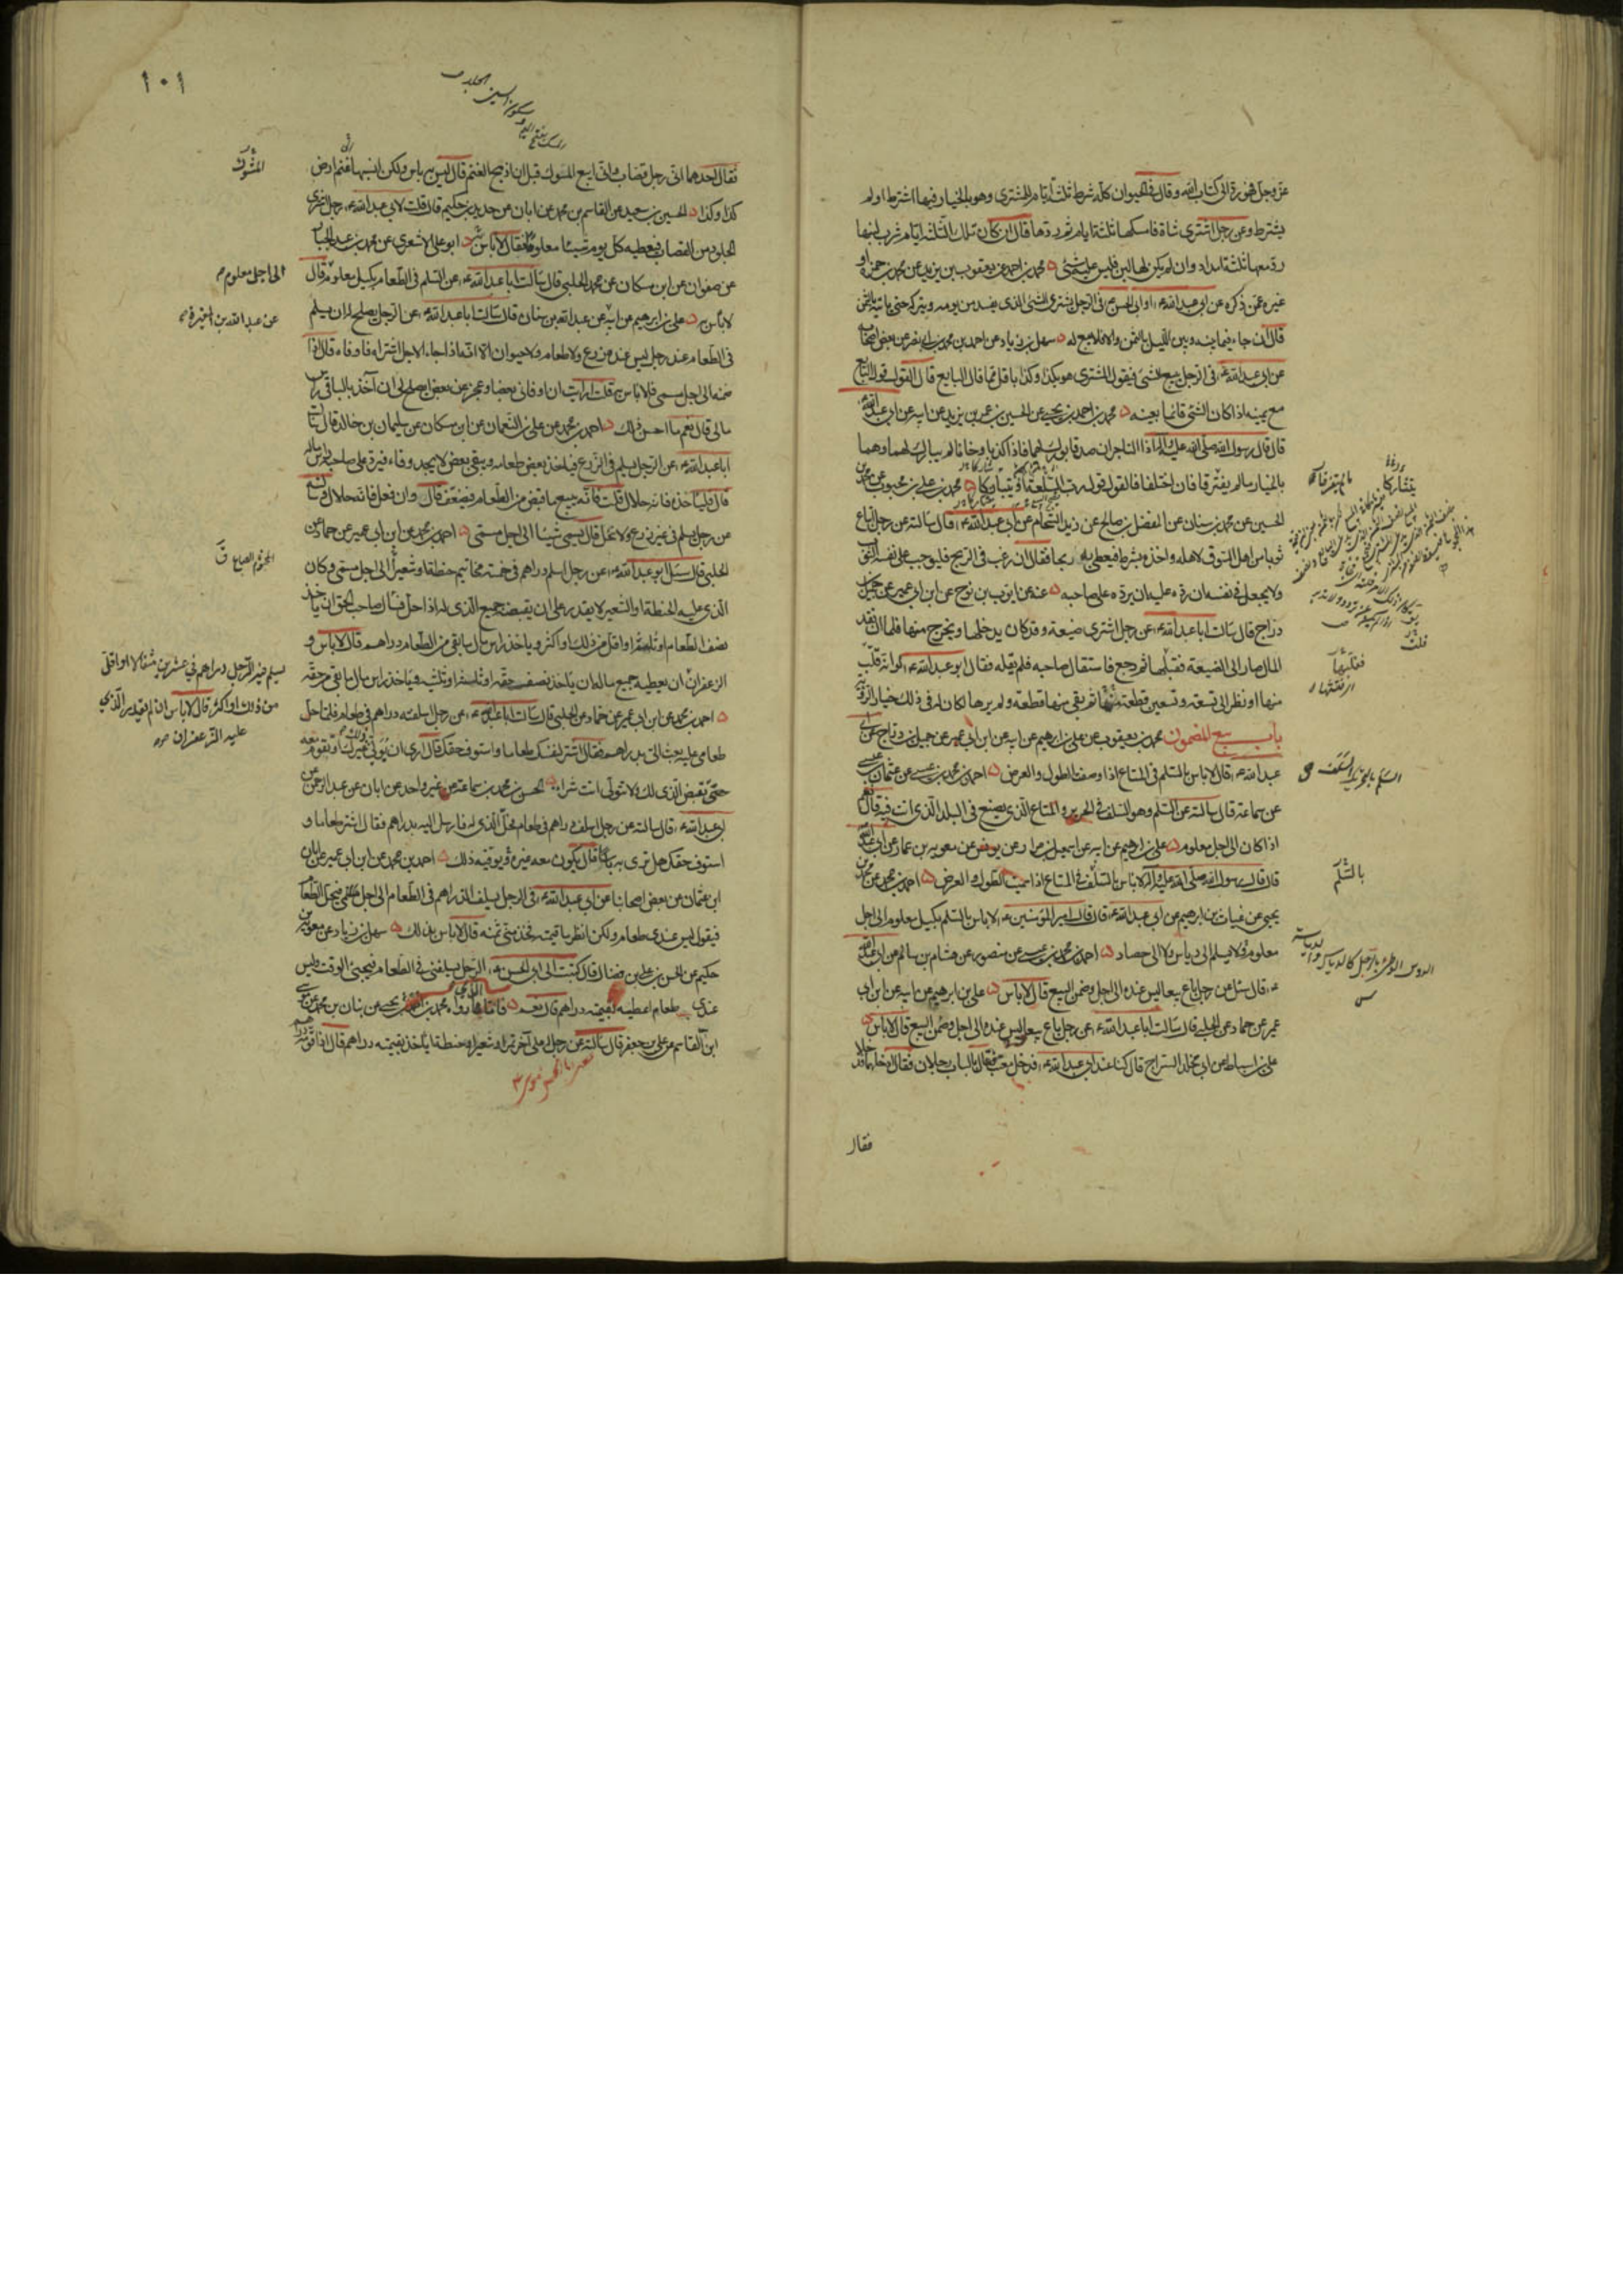 عز وجل فهو رد الى كتاب الله وقال في الحيوان كله شرط ثلثة ايام للمشترى وهو بالخيار فيها اشترط او لم
يشترط وعن رجل اشترى شاة فامسكها ثلثة ايام ثم ردها قال ان كان تلك الثلثة ايام شرب لبنها
رد معها ثلثة امداد وان لم يكن لها لبن فليس عليه شئ محمد بن احمد عن يعقوب بن يزيد عن محمد بن حمزة او
غيره عمن ذكره عن ابى عبد الله ع او ابى الحسن ع فى الرجل يشترى الشئ الذى يفسد من يومه ويتركه حتى ياتيه بالثمن
قال ان جاء فيما بينه وبين الليل بالثمن والا فلا بيع له سهل بن زياد عن احمد بن محمد بن ابى نصر عن بعض اصحابه
عن ابى عبد الله ع فى الرجل يبيع الشئ فيقول المشترى هو بكذا وكذا باقل مما قال البايع قال القول قول البايع
مع يمينه اذا كان الشئ قائما بعينه محمد بن احمد بن يحيى عن الحسين بن عمر بن يزيد عن ابيه عن ابى عبد الله ع
قال قال رسول الله صلى الله عليه واله اذا التاجران صدقا بورك لهما فاذا كذبا وخانا لم يبارك لهما وهما
بالخيار ما لم يفترقا فان اختلفا فالقول قول رب السلعة او يتتاركا محمد بن على بن محبوب عن محمد بن
الحسين عن محمد بن سنان عن المفضل بن صالح عن زيد الشحام عن ابى عبد الله ع قال سالته عن رجل ابتاع
ثوبا من اهل السوق لاهله واخذه بشرط فيعطى به ربحا فقال ان رغب فى الربح فليوجب على نفسه الثوب
ولا يجعل فى نفسه ان رده عليه ان يرده على صاحبه عنه عن ايوب بن نوح عن ابن ابى عمير عن جميل بن
دراج قال سالت ابا عبد الله ع عن رجل اشترى ضيعة وقد كان يدخلها ويخرج منها فلما ان نقد
المال صار الى الضيعة فقلبها ثم رجع فاستقال صاحبه فلم يقله فقال ابو عبد الله ع لو انه قلب
منها او نظر الى تسعة وتسعين قطعة منها ثم بقى منها قطعة ولم يرها لكان له فى ذلك خيار الرؤية
باب بيع المضمون محمد بن يعقوب عن على بن ابرهيم عن ابيه عن ابن ابى عمير عن جميل بن دراج عن ابى
عبد الله ع قال لا باس بالسلم فى المتاع اذا وصفت الطول والعرض احمد بن محمد بن عيسى عن عثمان بن عيسى
عن سماعة قال سالته عن السلم وهو السلف فى الحرير والمتاع الذى يصنع فى البلد الذى انت فيه قال نعم
اذا كان الى اجل معلوم على بن ابرهيم عن ابيه عن اسمعيل بن مرار عن يونس عن معوية بن عمار عن ابى عبد الله ع
قال قال رسول الله صلى الله عليه واله لا باس بالسلف فى المتاع اذا سميت الطول والعرض احمد بن محمد عن محمد بن
يحيى عن غياث بن ابرهيم عن ابى عبد الله ع قال قال امير المؤمنين ع لا باس بالسلم بكيل معلوم الى اجل
معلوم ولا يسلم الى دياس ولا الى حصاد احمد بن محمد بن عيسى عن منصور عن هشام بن سالم عن ابى عبد الله
ع قال سئل عن رجل باع بيعا ليس عنده الى اجل وضمن البيع قال لا باس على بن ابرهيم عن ابيه عن ابن ابى
عمير عن حماد عن الحلبى قال سالت ابا عبد الله ع عن رجل باع بيعا ليس عنده الى اجل وضمن البيع قال لا باس
على بن اسباط عن ابى مخلد السراج قال كنا عند ابى عبد الله ع فدخل معتب فقال بالباب رجلان فقال ادخلهما فدخلا
فقال
يتتاركا
ما لم يتفرقا
فقلبها
بالسلم
١٠١
فقال احدهما انى رجل قصاب وانى ابيع المسوك قبل ان اذبح الغنم قال ليس به باس ولكن انسبها غنم ارض
كذا وكذا الحسين بن سعيد عن القاسم بن محمد عن ابان عن حديد بن حكيم قال قلت لابى عبد الله ع رجل اشترى
الجلود من القصاب فيعطيه كل يوم شيئا معلوما فقال لا باس به ابو على الاشعرى عن محمد بن عبد الجبار
عن صفوان عن ابن مسكان عن محمد الحلبى قال سالت ابا عبد الله ع عن السلم فى الطعام بكيل معلوم قال
لا باس به على بن ابرهيم عن ابيه عن عبد الله بن سنان قال سالت ابا عبد الله ع عن الرجل يصلح له ان يسلم
فى الطعام عند رجل ليس عنده زرع ولا طعام ولا حيوان الا انه اذا جاء الاجل اشتراه فاوفاه قال اذا
ضمنه الى اجل مسمى فلا باس به قلت ارايت ان اوفانى بعضا وعجز عن بعض ايصلح لى ان آخذ بالباقى راس
مالى قال نعم ما احسن ذلك احمد بن محمد عن على بن النعمان عن ابن مسكان عن سليمان بن خالد قال سالت
ابا عبد الله ع عن الرجل يسلم فى الزرع فياخذ بعض طعامه ويبقى بعض لا يجد وفاء فيرد على صاحبه راس ماله
قال فلياخذه فانه حلال قلت فانه يبيع ما قبض من الطعام فيضعف قال وان فعل فانه حلال وسالته
عن رجل يسلم فى غير زرع ولا نخل قال يسمى شيئا الى اجل مسمى احمد بن محمد عن ابن ابى عمير عن حماد عن
الحلبى قال سئل ابو عبد الله ع عن رجل اسلم دراهم فى خمسة مخاتيم حنطة او شعير الى اجل مسمى وكان
الذى عليه الحنطة والشعير لا يقدر على ان يقبضه جميع الذى له اذا حل فسال صاحب الحق ان ياخذ
نصف الطعام او ثلثه او اقل من ذلك او اكثر وياخذ راس مال ما بقى من الطعام دراهم قال لا باس و
الزعفران ان يعطيه جميع ماله ان ياخذ نصف حقه او ثلثه او ثلثيه فياخذ راس مال ما بقى من حقه
احمد بن محمد عن ابن ابى عمير عن حماد عن الحلبى قال سالت ابا عبد الله ع عن رجل اسلفته دراهم فى طعام فلما حل
طعامى عليه بعث الى بدراهم فقال اشتر لنفسك طعاما واستوف حقك قال ارى ان يولى ذلك غيرك او تقوم معه
حتى تقبض الذى لك ولا تتولى انت شراءه الحسن بن محمد بن سماعة عن غير واحد عن ابان عن عبد الرحمن عن
ابى عبد الله ع قال سالته عن رجل اسلف دراهم فى طعام فحل الذى له فارسل اليه بدراهم فقال اشتر طعاما و
استوف حقك هل ترى به باسا قال يكون معه غيره يوفيه ذلك احمد بن محمد عن ابن ابى عمير عن ابان
ابن عثمان عن بعض اصحابنا عن ابى عبد الله ع فى الرجل يسلف الدراهم فى الطعام الى اجل فيحل الطعام
فيقول ليس عندى طعام ولكن انظر ما قيمته فخذ منى ثمنه قال لا باس بذلك سهل بن زياد عن معوية بن
حكيم عن الحسن بن على بن فضال قال كتبت الى ابى الحسن ع الرجل يسلفنى فى الطعام فيجئ الوقت وليس
عندى طعام اعطيه بقيمته دراهم قال نعم فاما ما رواه محمد بن احمد بن يحيى عن بنان بن محمد عن موسى
ابن القاسم عن على بن جعفر قال سالته عن رجل له على آخر تمر او شعير او حنطة اياخذ بقيمته دراهم قال اذا قومه دراهم
المسوك
الى اجل معلوم
عن عبد الله بن المغيرة
المختوم الصاع ق
يسلم فيه الرجل دراهم فى عشرين مثقالا او اقل
من ذلك او اكثر قال لا باس ان لم يقدر الذى
عليه الزعفران